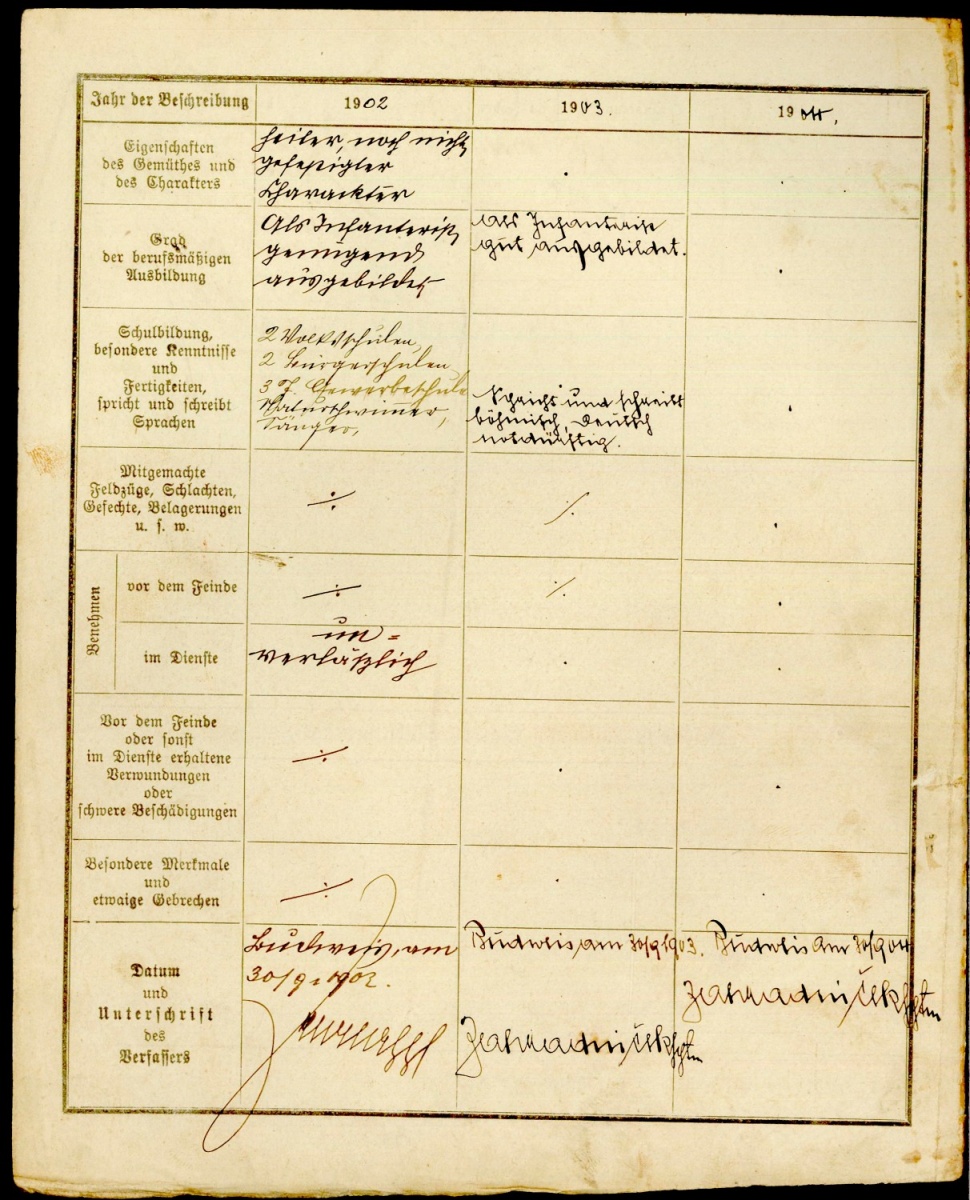 Jahr der Beschreibung
1902
1903.
1904.
Eigenschaften
des Gemüthes und
des Charakters
heiter, noch nicht
gefestigter
Charackter
Grad
der berufsmäßigen
Ausbildung
Als Infanterist
genügend
ausgebildet
Als Infanterist
gut ausgebildet.
Schulbildung,
besondere Kenntnisse
und
Fertigkeiten,
spricht und schreibt
Sprachen
2 Volksschulen
2 Bürgerschulen
3 J. Gewerbeschule
Naturschwimmer,
Sänger,
Spricht und schreibt
böhmisch, deutsch
notdürftig.
Mitgemachte
Feldzüge, Schlachten,
Gefechte, Belagerungen
u. s. w.
÷
÷
Benehmen
vor dem Feinde
÷
÷
im Dienste
un=
verläszlich
Vor dem Feinde
oder sonst
im Dienste erhaltene
Verwundungen
oder
schwere Beschädigungen
÷
Besondere Merkmale
und
etwaige Gebrechen
÷
Datum
und
Unterschrift
des
Verfassers
Budweis, am
30/9 1902.
Budweis am 30/9 1903.
Zahradniček Hptm
Budweis am 30/9 04
Zahradniček Hptm